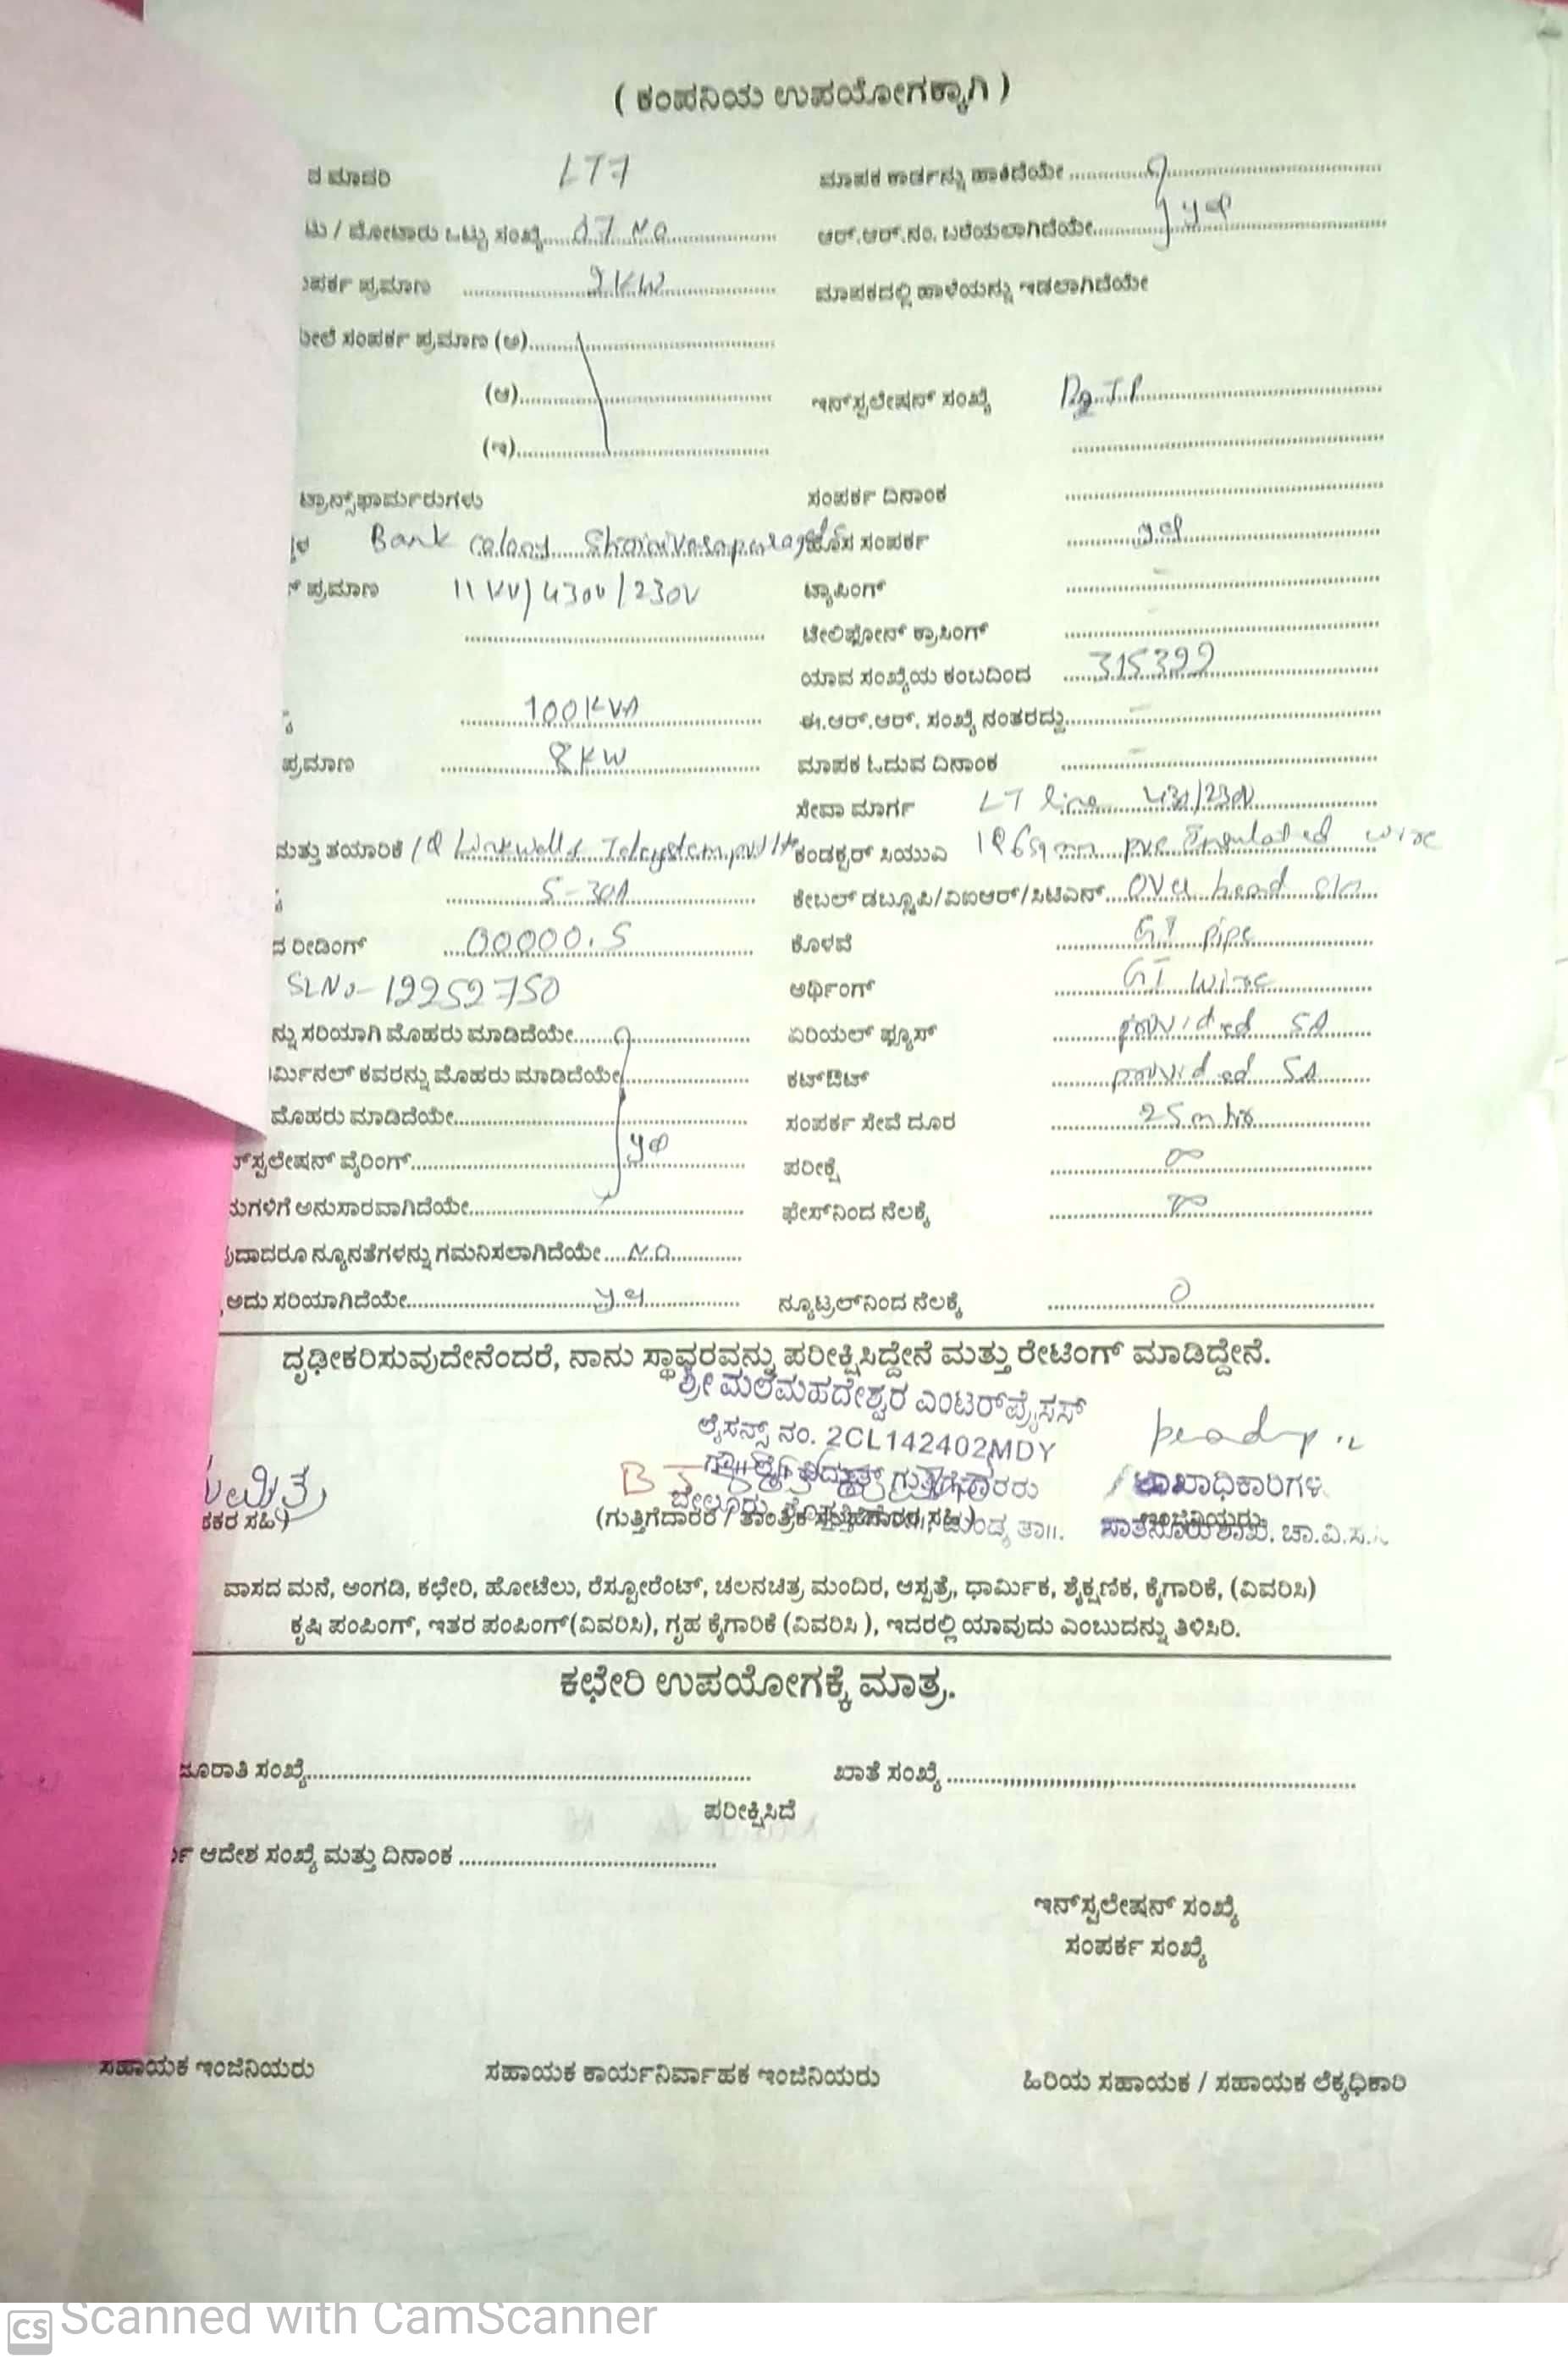 ( ಕಂಪನಿಯ ಉಪಯೋಗಕ್ಕಾಗಿ )
ದ ಮಾದರಿ LT7 ಮಾಪಕ ಕಾರ್ಡನ್ನು ಹಾಕಿದೆಯೇ
ಟು / ಮೋಟಾರು ಒಟ್ಟು ಸಂಖ್ಯೆ ಆರ್.ಆರ್.ನಂ. ಬರೆಯಲಾಗಿದೆಯೇ yes
ಪರ್ಕ ಪ್ರಮಾಣ KW ಮಾಪಕದಲ್ಲಿ ಹಾಳೆಯನ್ನು ಇಡಲಾಗಿದೆಯೇ
ಸಂಪರ್ಕ ಪ್ರಮಾಣ (ಅ)
(ಆ) ಇನ್‌ಸ್ಟಲೇಷನ್ ಸಂಖ್ಯೆ
(ಇ)
ಟ್ರಾನ್ಸ್‌ಫಾರ್ಮರುಗಳು ಸಂಪರ್ಕ ದಿನಾಂಕ
Bank colony ಹೊಸ ಸಂಪರ್ಕ yes
ಪ್ರಮಾಣ 11 KV/430V/230V ಟ್ಯಾಪಿಂಗ್
ಟೇಲಿಫೋನ್ ಕ್ರಾಸಿಂಗ್
ಯಾವ ಸಂಖ್ಯೆಯ ಕಂಬದಿಂದ 315399
100KVA ಈ.ಆರ್.ಆರ್. ಸಂಖ್ಯೆ ನಂತರದ್ದು
ಪ್ರಮಾಣ 8KW ಮಾಪಕ ಓದುವ ದಿನಾಂಕ
ಸೇವಾ ಮಾರ್ಗ LT line 430/230V
ಮತ್ತು ತಯಾರಿಕೆ ಕಂಡಕ್ಟರ್ ಸಿಯುಎ pvc wire
5-30A ಕೇಬಲ್ ಡಬ್ಲೂಪಿ/ವಿಐಆರ್/ಸಿಟಿಎಸ್ over head
ದ ರೀಡಿಂಗ್ 00000.5 ಕೊಳವೆ GI pipe
SLNo-19252750 ಅರ್ಥಿಂಗ್ GI wire
ನ್ನು ಸರಿಯಾಗಿ ಮೊಹರು ಮಾಡಿದೆಯೇ ಏರಿಯಲ್ ಫ್ಯೂಸ್ provided 5A
ರ್ಮಿನಲ್ ಕವರನ್ನು ಮೊಹರು ಮಾಡಿದೆಯೇ ಕಟ್‌ಔಟ್ provided 5A
ಮೊಹರು ಮಾಡಿದೆಯೇ ಸಂಪರ್ಕ ಸೇವೆ ದೂರ 25 mtrs
ನ್‌ಸ್ಟಲೇಷನ್ ವೈರಿಂಗ್ yes ಪರೀಕ್ಷೆ ∞
ಮಗಳಿಗೆ ಅನುಸಾರವಾಗಿದೆಯೇ ಫೇಸ್‌ನಿಂದ ನೆಲಕ್ಕೆ ∞
ವುದಾದರೂ ನ್ಯೂನತೆಗಳನ್ನು ಗಮನಿಸಲಾಗಿದೆಯೇ No
ಅದು ಸರಿಯಾಗಿದೆಯೇ yes ನ್ಯೂಟ್ರಲ್‌ನಿಂದ ನೆಲಕ್ಕೆ 0
ದೃಢೀಕರಿಸುವುದೇನೆಂದರೆ, ನಾನು ಸ್ಥಾವರವನ್ನು ಪರೀಕ್ಷಿಸಿದ್ದೇನೆ ಮತ್ತು ರೇಟಿಂಗ್ ಮಾಡಿದ್ದೇನೆ.
ಶ್ರೀ ಮಲೆಮಹದೇಶ್ವರ ಎಂಟರ್‌ಪ್ರೈಸಸ್
ಲೈಸನ್ಸ್ ನಂ. 2CL142402MDY
ವಿದ್ಯುತ್ ಗುತ್ತಿಗೆದಾರರು ಶಾಖಾಧಿಕಾರಿಗಳ
ಕಕರ ಸಹಿ) (ಗುತ್ತಿಗೆದಾರರ / ತಾಂತ್ರಿಕ ಸಹಿ) ಮಂಡ್ಯ ತಾ॥. ಇಂಜಿನಿಯರು ಚಾ.ವಿ.ಸ.
ವಾಸದ ಮನೆ, ಅಂಗಡಿ, ಕಛೇರಿ, ಹೋಟೆಲು, ರೆಸ್ಟೋರೆಂಟ್, ಚಲನಚಿತ್ರ ಮಂದಿರ, ಆಸ್ಪತ್ರೆ, ಧಾರ್ಮಿಕ, ಶೈಕ್ಷಣಿಕ, ಕೈಗಾರಿಕೆ, (ವಿವರಿಸಿ)
ಕೃಷಿ ಪಂಪಿಂಗ್, ಇತರ ಪಂಪಿಂಗ್(ವಿವರಿಸಿ), ಗೃಹ ಕೈಗಾರಿಕೆ (ವಿವರಿಸಿ ), ಇದರಲ್ಲಿ ಯಾವುದು ಎಂಬುದನ್ನು ತಿಳಿಸಿರಿ.
ಕಛೇರಿ ಉಪಯೋಗಕ್ಕೆ ಮಾತ್ರ.
ಜೂರಾತಿ ಸಂಖ್ಯೆ ಖಾತೆ ಸಂಖ್ಯೆ
ಪರೀಕ್ಷಿಸಿದೆ
ಆದೇಶ ಸಂಖ್ಯೆ ಮತ್ತು ದಿನಾಂಕ
ಇನ್‌ಸ್ಟಲೇಷನ್ ಸಂಖ್ಯೆ
ಸಂಪರ್ಕ ಸಂಖ್ಯೆ
ಸಹಾಯಕ ಇಂಜಿನಿಯರು ಸಹಾಯಕ ಕಾರ್ಯನಿರ್ವಾಹಕ ಇಂಜಿನಿಯರು ಹಿರಿಯ ಸಹಾಯಕ / ಸಹಾಯಕ ಲೆಕ್ಕಧಿಕಾರಿ
CS Scanned with CamScanner